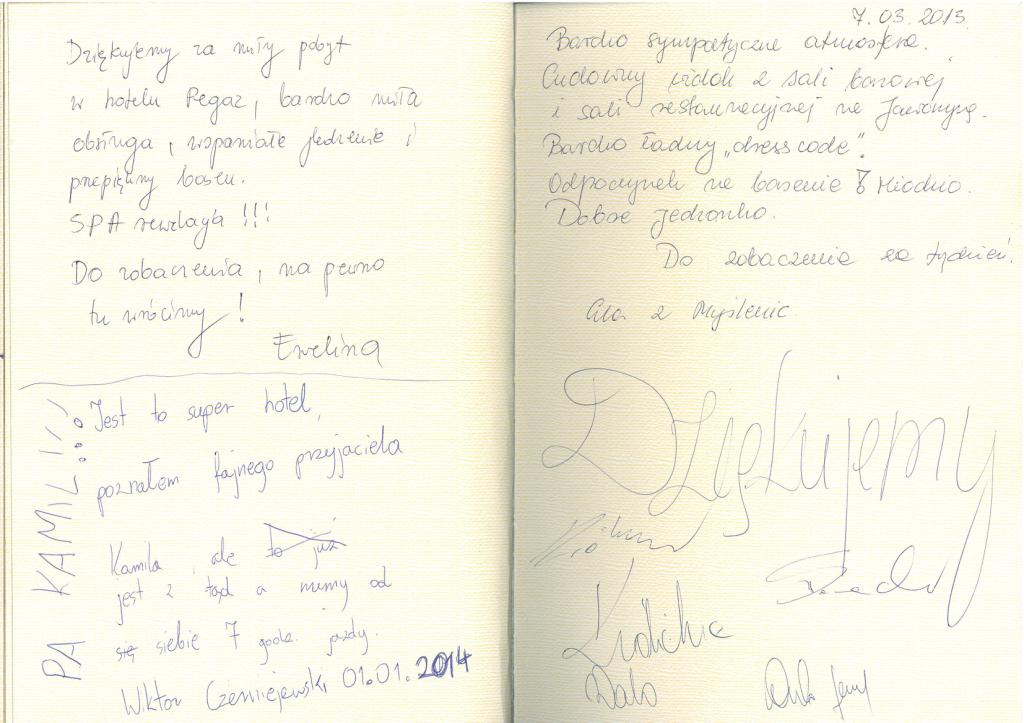 Dziękujemy za miły pobyt
w hotelu Pegaz, bardzo miła
obsługa, wspaniałe jedzenie i
przepiękny basen.
SPA rewelacja !!!
Do zobaczenia, na pewno
tu wrócimy !
Ewelina
Jest to super hotel,
poznałem fajnego przyjaciela
Kamila, ale to już
jest z tąd a mamy od
się siebie 7 godz. jazdy.
Wiktor Czerniejewski 01.01.2014
PA KAMIL !!!
7.03.2013
Bardzo sympatyczne atmosfera.
Cudowny widok z sali barowej
i sali restauracyjnej na Jaworzynę.
Bardzo ładny „dress code".
Odpoczynek na basenie
Dobre jedzonko.
Do zobaczenia za tydzień.
Ala z Myślenic
Dziękujemy